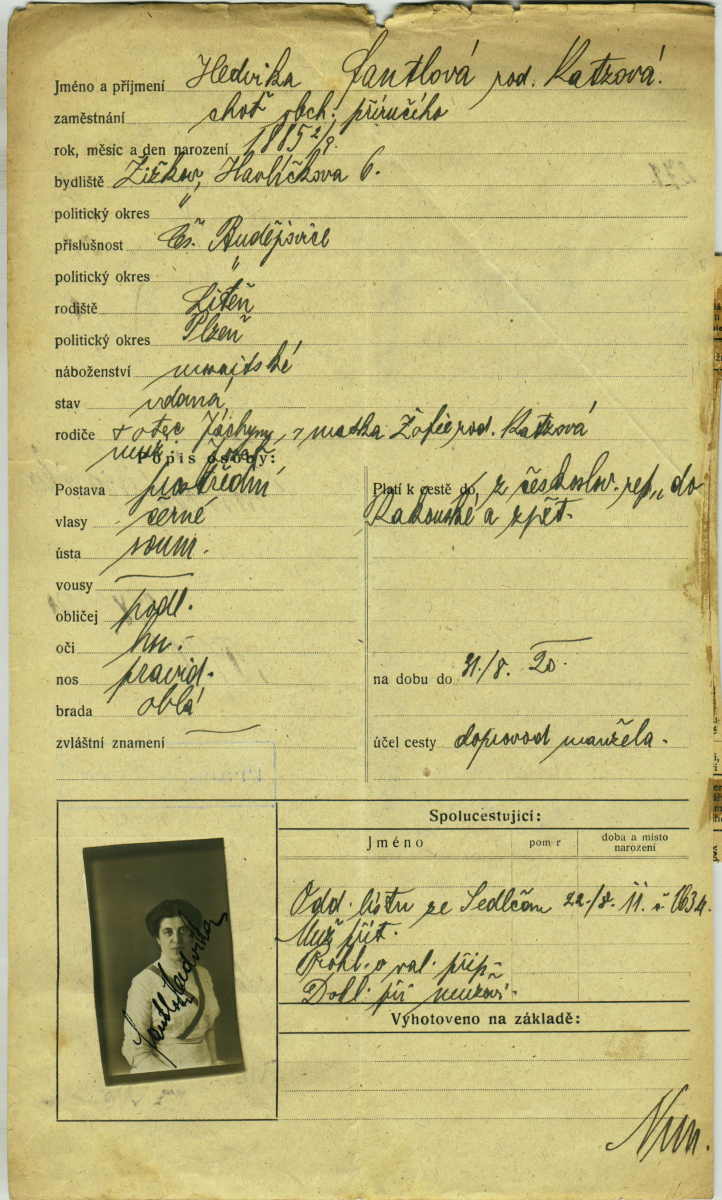 Jméno a příjmení Hedvika Fantlová rod. Katzová.
zaměstnání choť obch. příručího
rok, měsíc a den narození 1885 2/9.
bydliště Žižkov, Havlíčkova 6.
politický okres "
příslušnost Čs. Budějovice
politický okres "
rodiště Liteň
politický okres Plzeň
náboženství mosajtské
stav vdaná
rodiče + otec Jáchym, + matka Žofie rod. Katzová
Popis osoby:
Postava prostřední
vlasy černé
ústa soum.
vousy —
obličej podl.
oči hn.
nos pravid.
brada oblá
zvláštní znamení —
Platí k cestě do z českoslov. rep. do
Rakouska a zpět.
na dobu do 31./8. 20.
účel cesty doprovod manžela.
Fantlová Hedvika
Spolucestující:
Jméno pom r doba a místo narození
Odd. listu ze Sedlčan 22./8. 11. č 1634.
Muž přít.
Prohl. o val. přip.
Dokl. při
Vyhotoveno na základě: